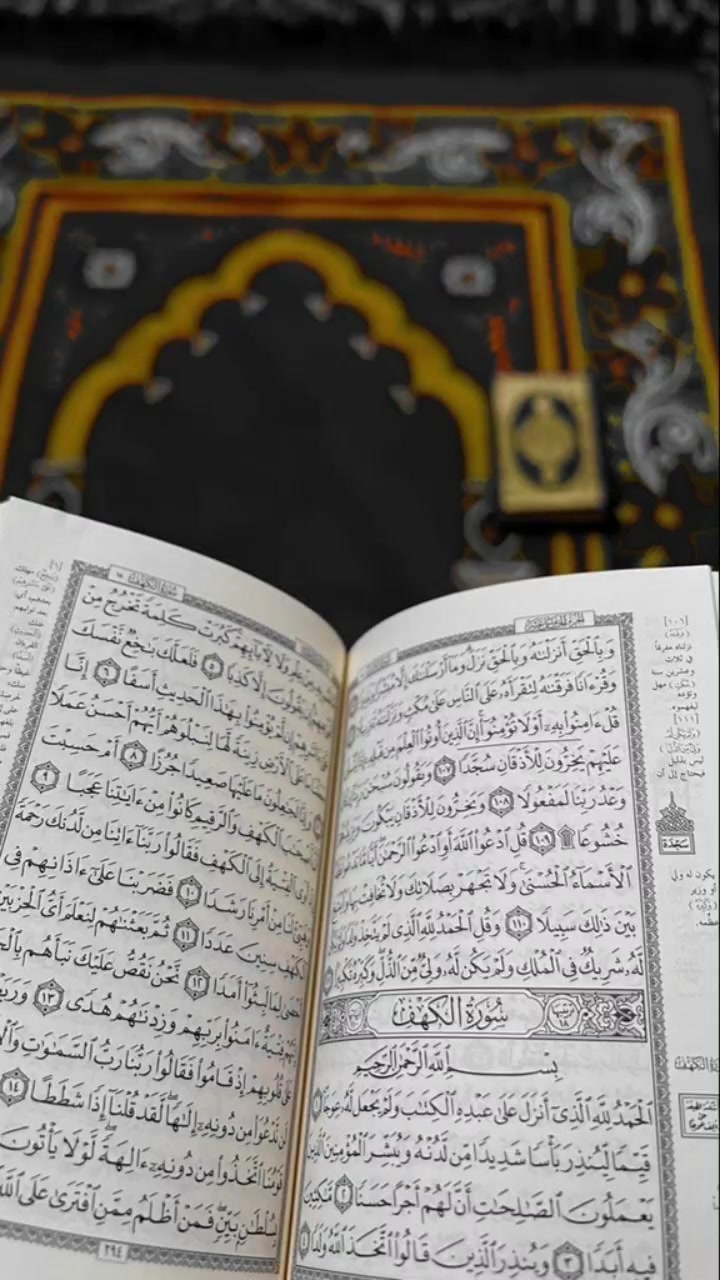 الجزء الخامس عشر
وَبِالْحَقِّ أَنزَلْنَاهُ وَبِالْحَقِّ نَزَلَ وَمَا أَرْسَلْنَاكَ إِلَّا مُبَشِّرًا
وَقُرْءَانًا فَرَقْنَاهُ لِتَقْرَأَهُ عَلَى النَّاسِ عَلَى مُكْثٍ وَنَزَّلْنَاهُ تَنزِيلًا
قُلْ ءَامِنُوا بِهِ أَوْ لَا تُؤْمِنُوا إِنَّ الَّذِينَ أُوتُوا الْعِلْمَ مِن قَبْلِهِ
عَلَيْهِمْ يَخِرُّونَ لِلْأَذْقَانِ سُجَّدًا ١٠٧ وَيَقُولُونَ سُبْحَانَ رَبِّنَا
وَعْدُ رَبِّنَا لَمَفْعُولًا ١٠٨ وَيَخِرُّونَ لِلْأَذْقَانِ يَبْكُونَ وَيَزِيدُهُمْ
خُشُوعًا ۩ ١٠٩ قُلِ ادْعُوا اللَّهَ أَوِ ادْعُوا الرَّحْمَٰنَ أَيًّا مَّا تَدْعُوا
الْأَسْمَاءُ الْحُسْنَىٰ وَلَا تَجْهَرْ بِصَلَاتِكَ وَلَا تُخَافِتْ بِهَا وَابْتَغِ
بَيْنَ ذَٰلِكَ سَبِيلًا ١١٠ وَقُلِ الْحَمْدُ لِلَّهِ الَّذِي لَمْ يَتَّخِذْ وَلَدًا
لَّهُ شَرِيكٌ فِي الْمُلْكِ وَلَمْ يَكُن لَّهُ وَلِيٌّ مِّنَ الذُّلِّ وَكَبِّرْهُ تَكْبِيرًا
سُورَةُ الْكَهْفِ
بِسْمِ اللَّهِ الرَّحْمَٰنِ الرَّحِيمِ
الْحَمْدُ لِلَّهِ الَّذِي أَنزَلَ عَلَىٰ عَبْدِهِ الْكِتَابَ وَلَمْ يَجْعَل لَّهُ عِوَجًا ١
قَيِّمًا لِّيُنذِرَ بَأْسًا شَدِيدًا مِّن لَّدُنْهُ وَيُبَشِّرَ الْمُؤْمِنِينَ الَّذِينَ
يَعْمَلُونَ الصَّالِحَاتِ أَنَّ لَهُمْ أَجْرًا حَسَنًا ٢ مَّاكِثِينَ
فِيهِ أَبَدًا ٣ وَيُنذِرَ الَّذِينَ قَالُوا اتَّخَذَ اللَّهُ وَلَدًا ٤
سَجْدَة
سُورَةُ الْكَهْفِ
وَلَا لِآبَائِهِمْ كَبُرَتْ كَلِمَةً تَخْرُجُ مِنْ
يَقُولُونَ إِلَّا كَذِبًا ٥ فَلَعَلَّكَ بَاخِعٌ نَّفْسَكَ
إِن لَّمْ يُؤْمِنُوا بِهَٰذَا الْحَدِيثِ أَسَفًا ٦ إِنَّا
عَلَى الْأَرْضِ زِينَةً لَّهَا لِنَبْلُوَهُمْ أَيُّهُمْ أَحْسَنُ عَمَلًا
وَإِنَّا لَجَاعِلُونَ مَا عَلَيْهَا صَعِيدًا جُرُزًا ٨ أَمْ حَسِبْتَ
الْكَهْفِ وَالرَّقِيمِ كَانُوا مِنْ ءَايَاتِنَا عَجَبًا ٩
الْفِتْيَةُ إِلَى الْكَهْفِ فَقَالُوا رَبَّنَا ءَاتِنَا مِن لَّدُنكَ رَحْمَةً
لَنَا مِنْ أَمْرِنَا رَشَدًا ١٠ فَضَرَبْنَا عَلَىٰ ءَاذَانِهِمْ فِي
الْكَهْفِ سِنِينَ عَدَدًا ١١ ثُمَّ بَعَثْنَاهُمْ لِنَعْلَمَ أَيُّ الْحِزْبَيْنِ
أَحْصَىٰ لِمَا لَبِثُوا أَمَدًا ١٢ نَّحْنُ نَقُصُّ عَلَيْكَ نَبَأَهُم
فِتْيَةٌ ءَامَنُوا بِرَبِّهِمْ وَزِدْنَاهُمْ هُدًى ١٣
عَلَىٰ قُلُوبِهِمْ إِذْ قَامُوا فَقَالُوا رَبُّنَا رَبُّ السَّمَاوَاتِ
لَن نَّدْعُوَا مِن دُونِهِ إِلَٰهًا لَّقَدْ قُلْنَا إِذًا شَطَطًا ١٤
قَوْمُنَا اتَّخَذُوا مِن دُونِهِ ءَالِهَةً لَّوْلَا يَأْتُونَ
بِسُلْطَانٍ بَيِّنٍ فَمَنْ أَظْلَمُ مِمَّنِ افْتَرَىٰ عَلَى اللَّهِ
٢٩٤